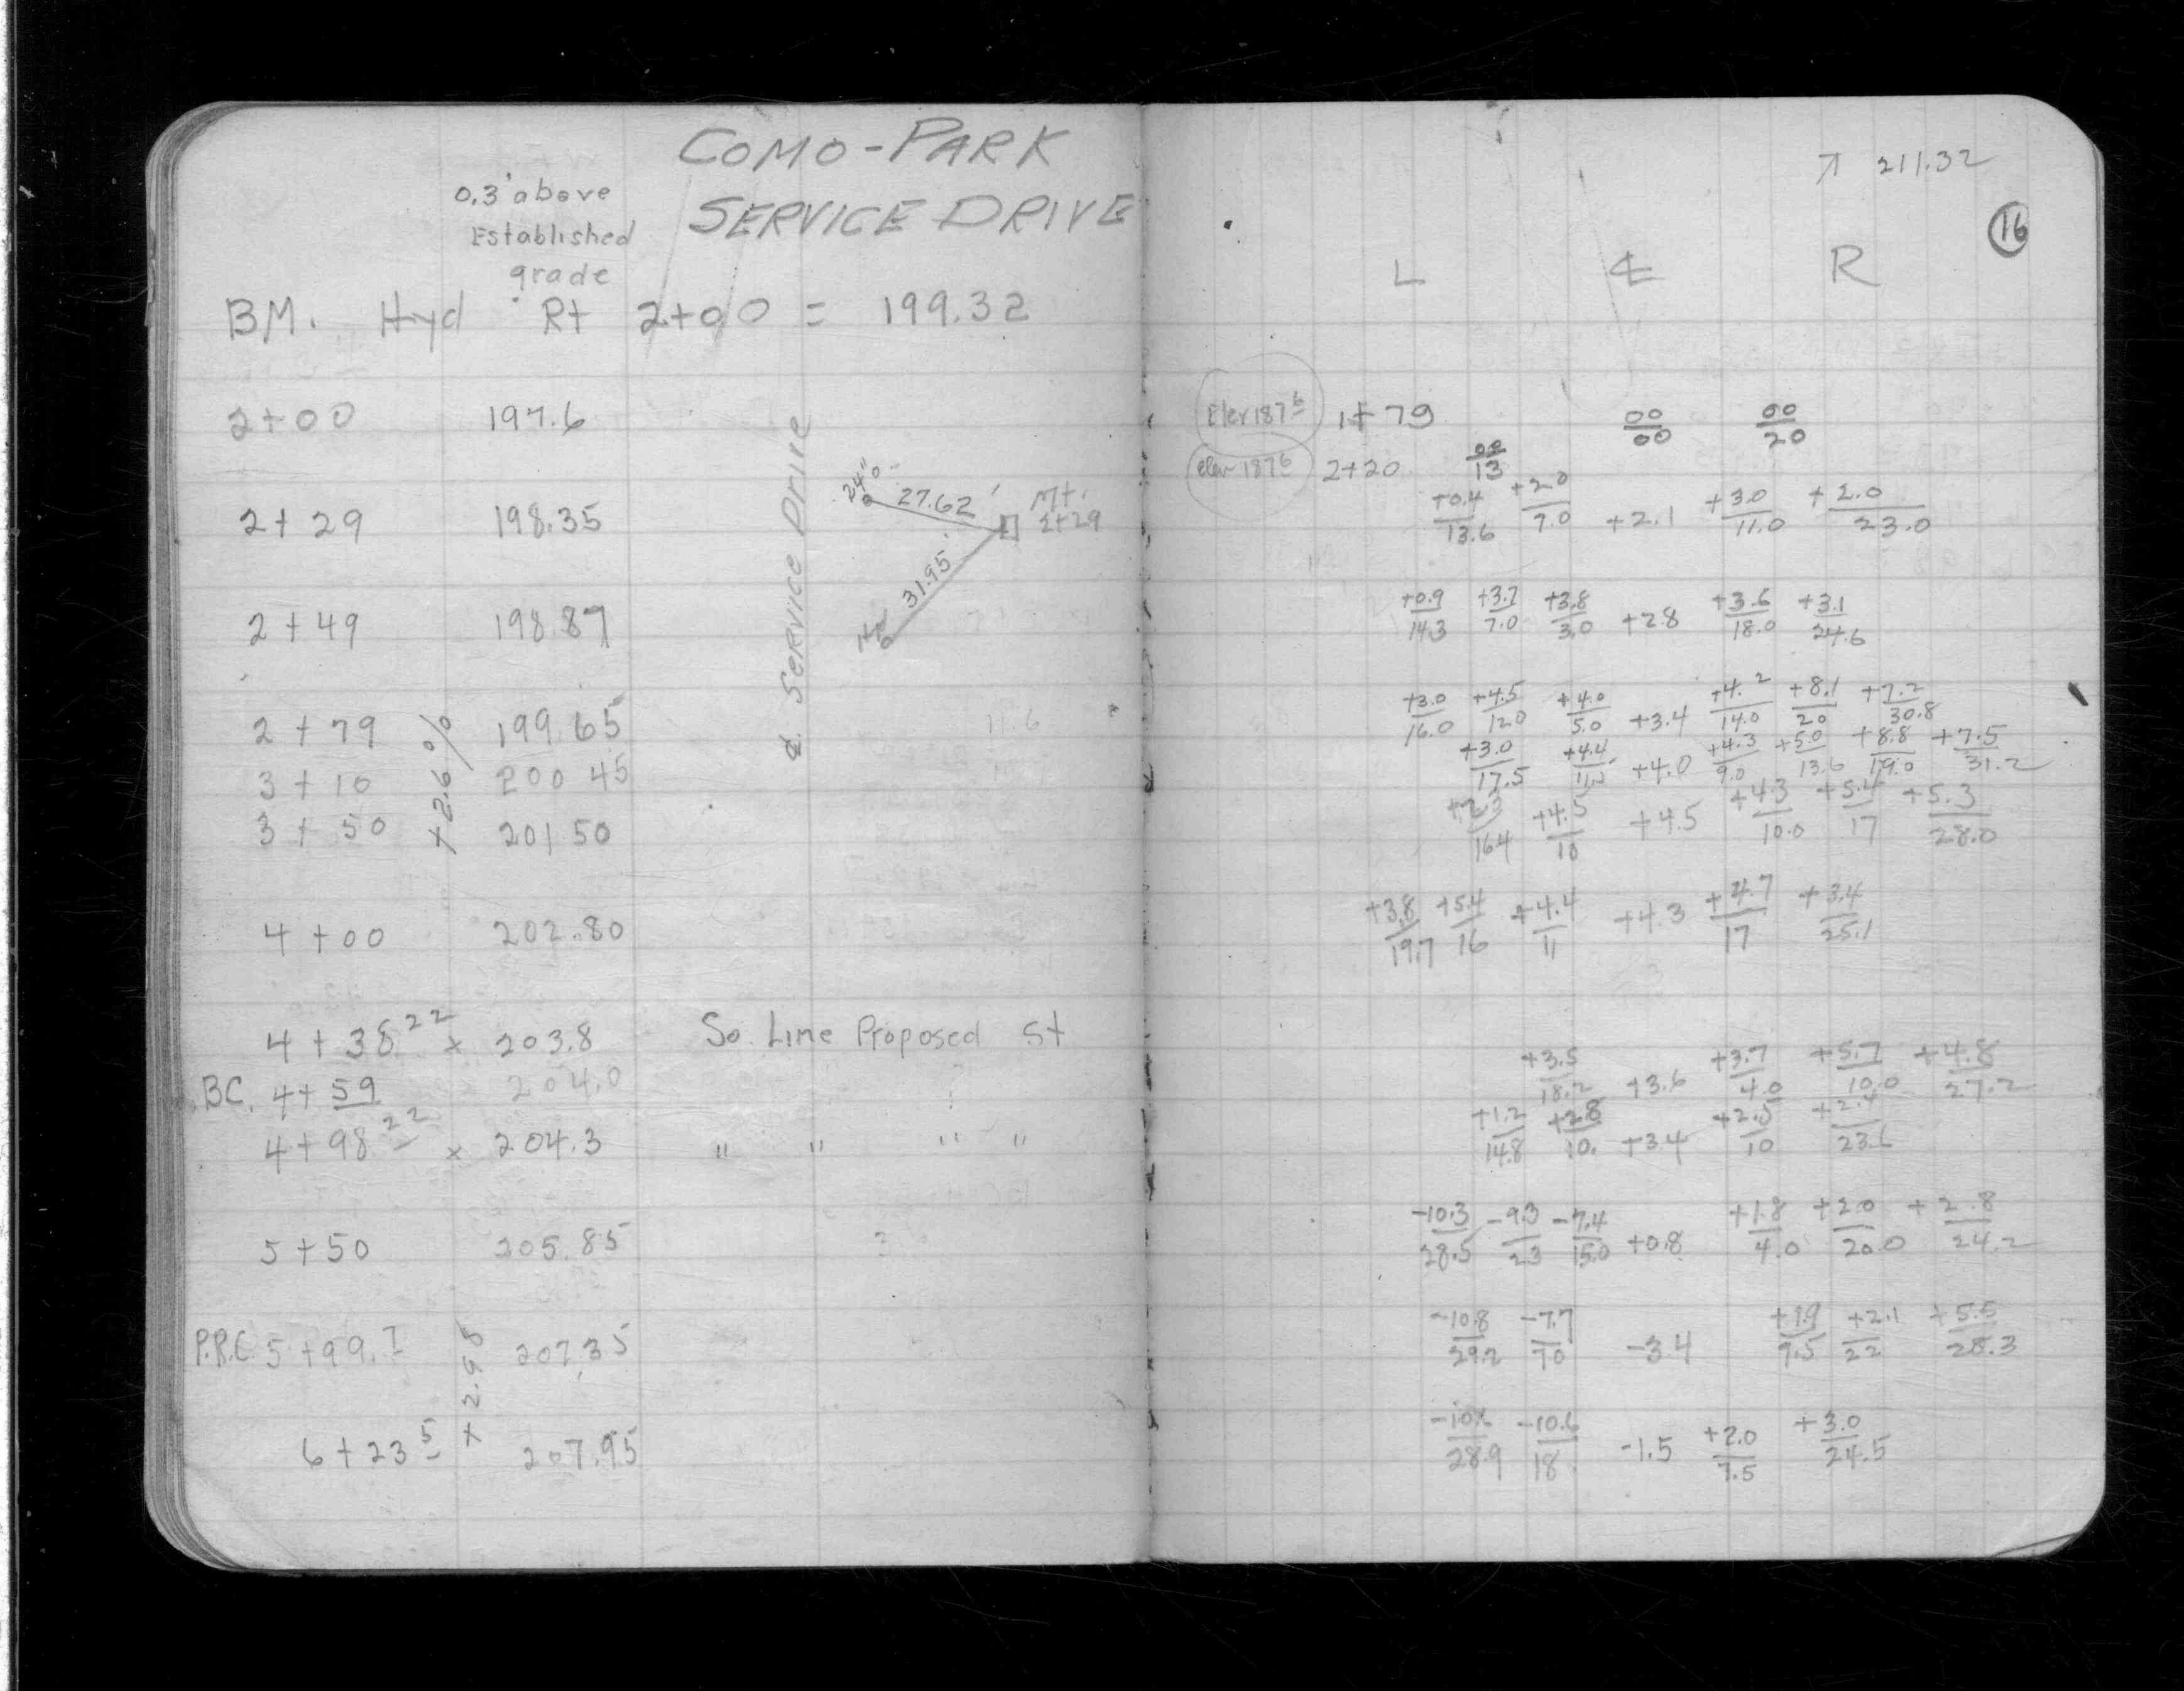 COMO-PARK
SERVICE DRIVE
0.3' above
Established
grade
BM. Hyd Rt 2+00 = 199.32
2+00 197.6
2+29 198.35
2+49 198.87
2+79 199.65
3+10 200 45
3+50 201 50
+2.6%
4+00 202.80
4+38.22 x 203.8 So. Line Proposed St
BC. 4+59 204.0 ?
4+98 22 x 204.3 " " " "
5+50 205.85 ?
P.R.C. 5+99.7 207.35
+2.98
6+23 5 207.95
Service Drive
24"
27.62'
Mt.
2+29
31.95'
11.6
↗ 211.32
16
L ℄ R
Elev 187 6 1+79 00/00 00/20
elev 187 6 2+20 00/13
+0.4/13.6 +2.0/7.0 +2.1 +3.0/11.0 +2.0/23.0
+0.9/14.3 +3.7/7.0 +3.8/3.0 +2.8 +3.6/18.0 +3.1/24.6
+3.0/16.0 +4.5/12.0 +4.0/5.0 +3.4 +4.2/14.0 +8.1/20 +7.2/30.8
+3.0/17.5 +4.4 +4.0 +4.3/9.0 +5.0/13.6 +8.8/19.0 +7.5/31.2
16.4 +4.5/10 +4.5 +4.3/10.0 +5.4/17 +5.3/28.0
+3.8/19.7 +5.4/16 +4.4/11 +4.3 +4.7/17 +3.4/25.1
+3.5/18.2 +3.6 +3.7/4.0 +5.7/10.0 +4.8/27.2
+1.2/14.8 +2.8/10. +3.4 +2.5/10 +2.4/23.6
-10.3/28.5 -9.3/23 -7.4/15.0 +0.8 +1.8/4.0 +2.0/20.0 +2.8/24.2
-10.8/29.2 -7.7/10 -3.4 +1.9/9.5 +2.1/22 +5.5/28.3
-10.6/28.9 -10.6/18 -1.5 +2.0/7.5 +3.0/24.5